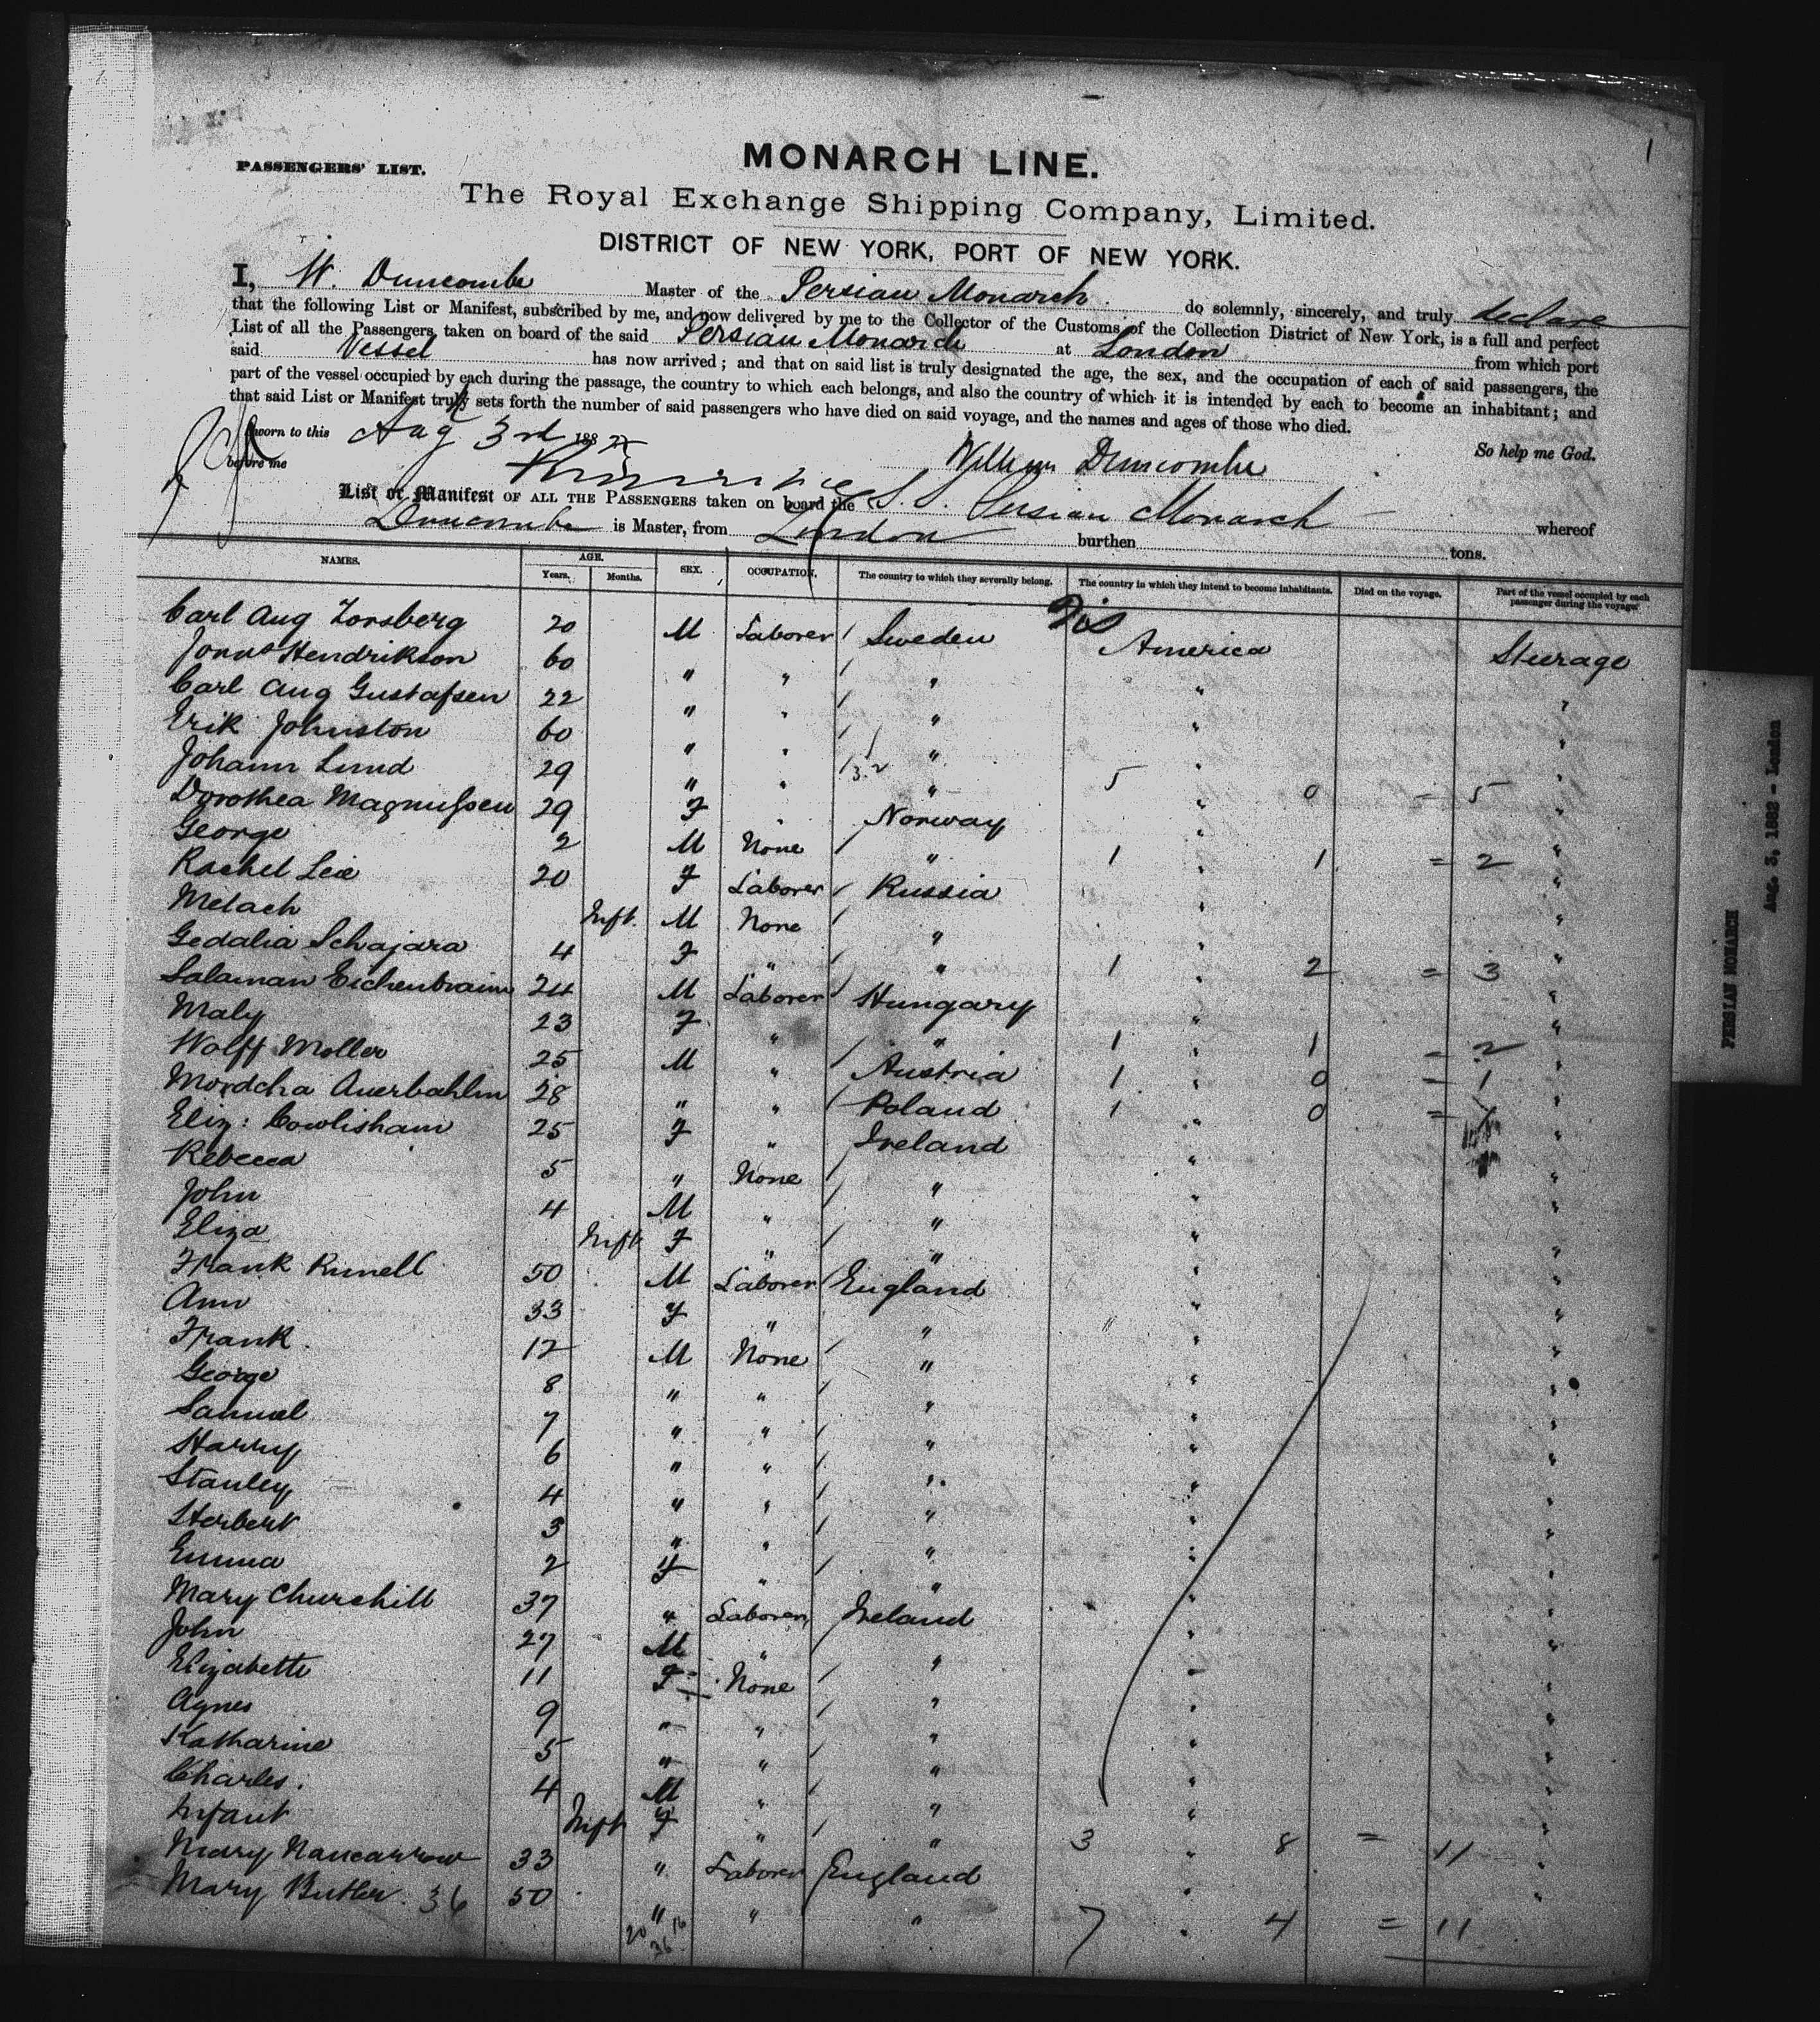 1
PASSENGERS' LIST.
MONARCH LINE.
The Royal Exchange Shipping Company, Limited.
DISTRICT OF NEW YORK, PORT OF NEW YORK.
I, W. Duncombe Master of the Persian Monarch do solemnly, sincerely, and truly declare
that the following List or Manifest, subscribed by me, and now delivered by me to the Collector of the Customs of the Collection District of New York, is a full and perfect
List of all the Passengers taken on board of the said Persian Monarch at London from which port
said Vessel has now arrived; and that on said list is truly designated the age, the sex, and the occupation of each of said passengers, the
part of the vessel occupied by each during the passage, the country to which each belongs, and also the country of which it is intended by each to become an inhabitant; and
that said List or Manifest truly sets forth the number of said passengers who have died on said voyage, and the names and ages of those who died.
Sworn to this Aug 3rd 1882 So help me God.
before me William Duncombe
List or Manifest OF ALL THE PASSENGERS taken on board the S.S. Persian Monarch whereof
Duncombe is Master, from London burthen tons.
NAMES. AGE. Years. Months. SEX. OCCUPATION. The country to which they severally belong. The country in which they intend to become inhabitants. Died on the voyage. Part of the vessel occupied by each passenger during the voyage
Carl Aug Forsberg 20 M Laborer Sweden America Steerage
Jonas Hendrikson 60 " " " " "
Carl Aug Gustafsen 22 " " " " "
Erik Johnston 60 " " " " "
Johann Lund 29 " " " 5 " 0 - 5 "
Dorothea Magnussen 29 F " Norway " "
George 2 M None " 1 " 1 = 2 "
Rachel Leie 20 F Laborer Russia " "
Melach Inft. M None " " "
Gedalia Schajara 4 F " " 1 " 2 = 3 "
Salaman Eichenbraun 24 M Laborer Hungary " "
Maly 23 F " " 1 " 1 = 2 "
Wolff Moller 25 M " Austria 1 " 0 - 1 "
Mordcha Auerbahlm 28 " " Poland 1 " 0 = 1 "
Eliz: Cowlisham 25 F " Ireland " "
Rebecca 5 " None " " "
John 4 M " " " "
Eliza Inft F " " " "
Frank Runell 50 M Laborer England " "
Ann 33 F " " " "
Frank 12 M None " " "
George 8 " " " " "
Samuel 7 " " " " "
Harry 6 " " " " "
Stanley 4 " " " " "
Herbert 3 " " " " "
Emma 2 F " " " "
Mary Churchill 37 " Laborer Ireland " "
John 27 M " " " "
Elizabeth 11 F None " " "
Agnes 9 " " " " "
Katharine 5 " " " " "
Charles. 4 M " " " "
Infant Inft F " " 3 " 8 = 11 "
Mary Nancarrow 33 " Laborer England " "
Mary Butler. 36 50 " " " 7 " 4 = 11
20 16
36
PERSIAN MONARCH
Aug. 3, 1882 - London